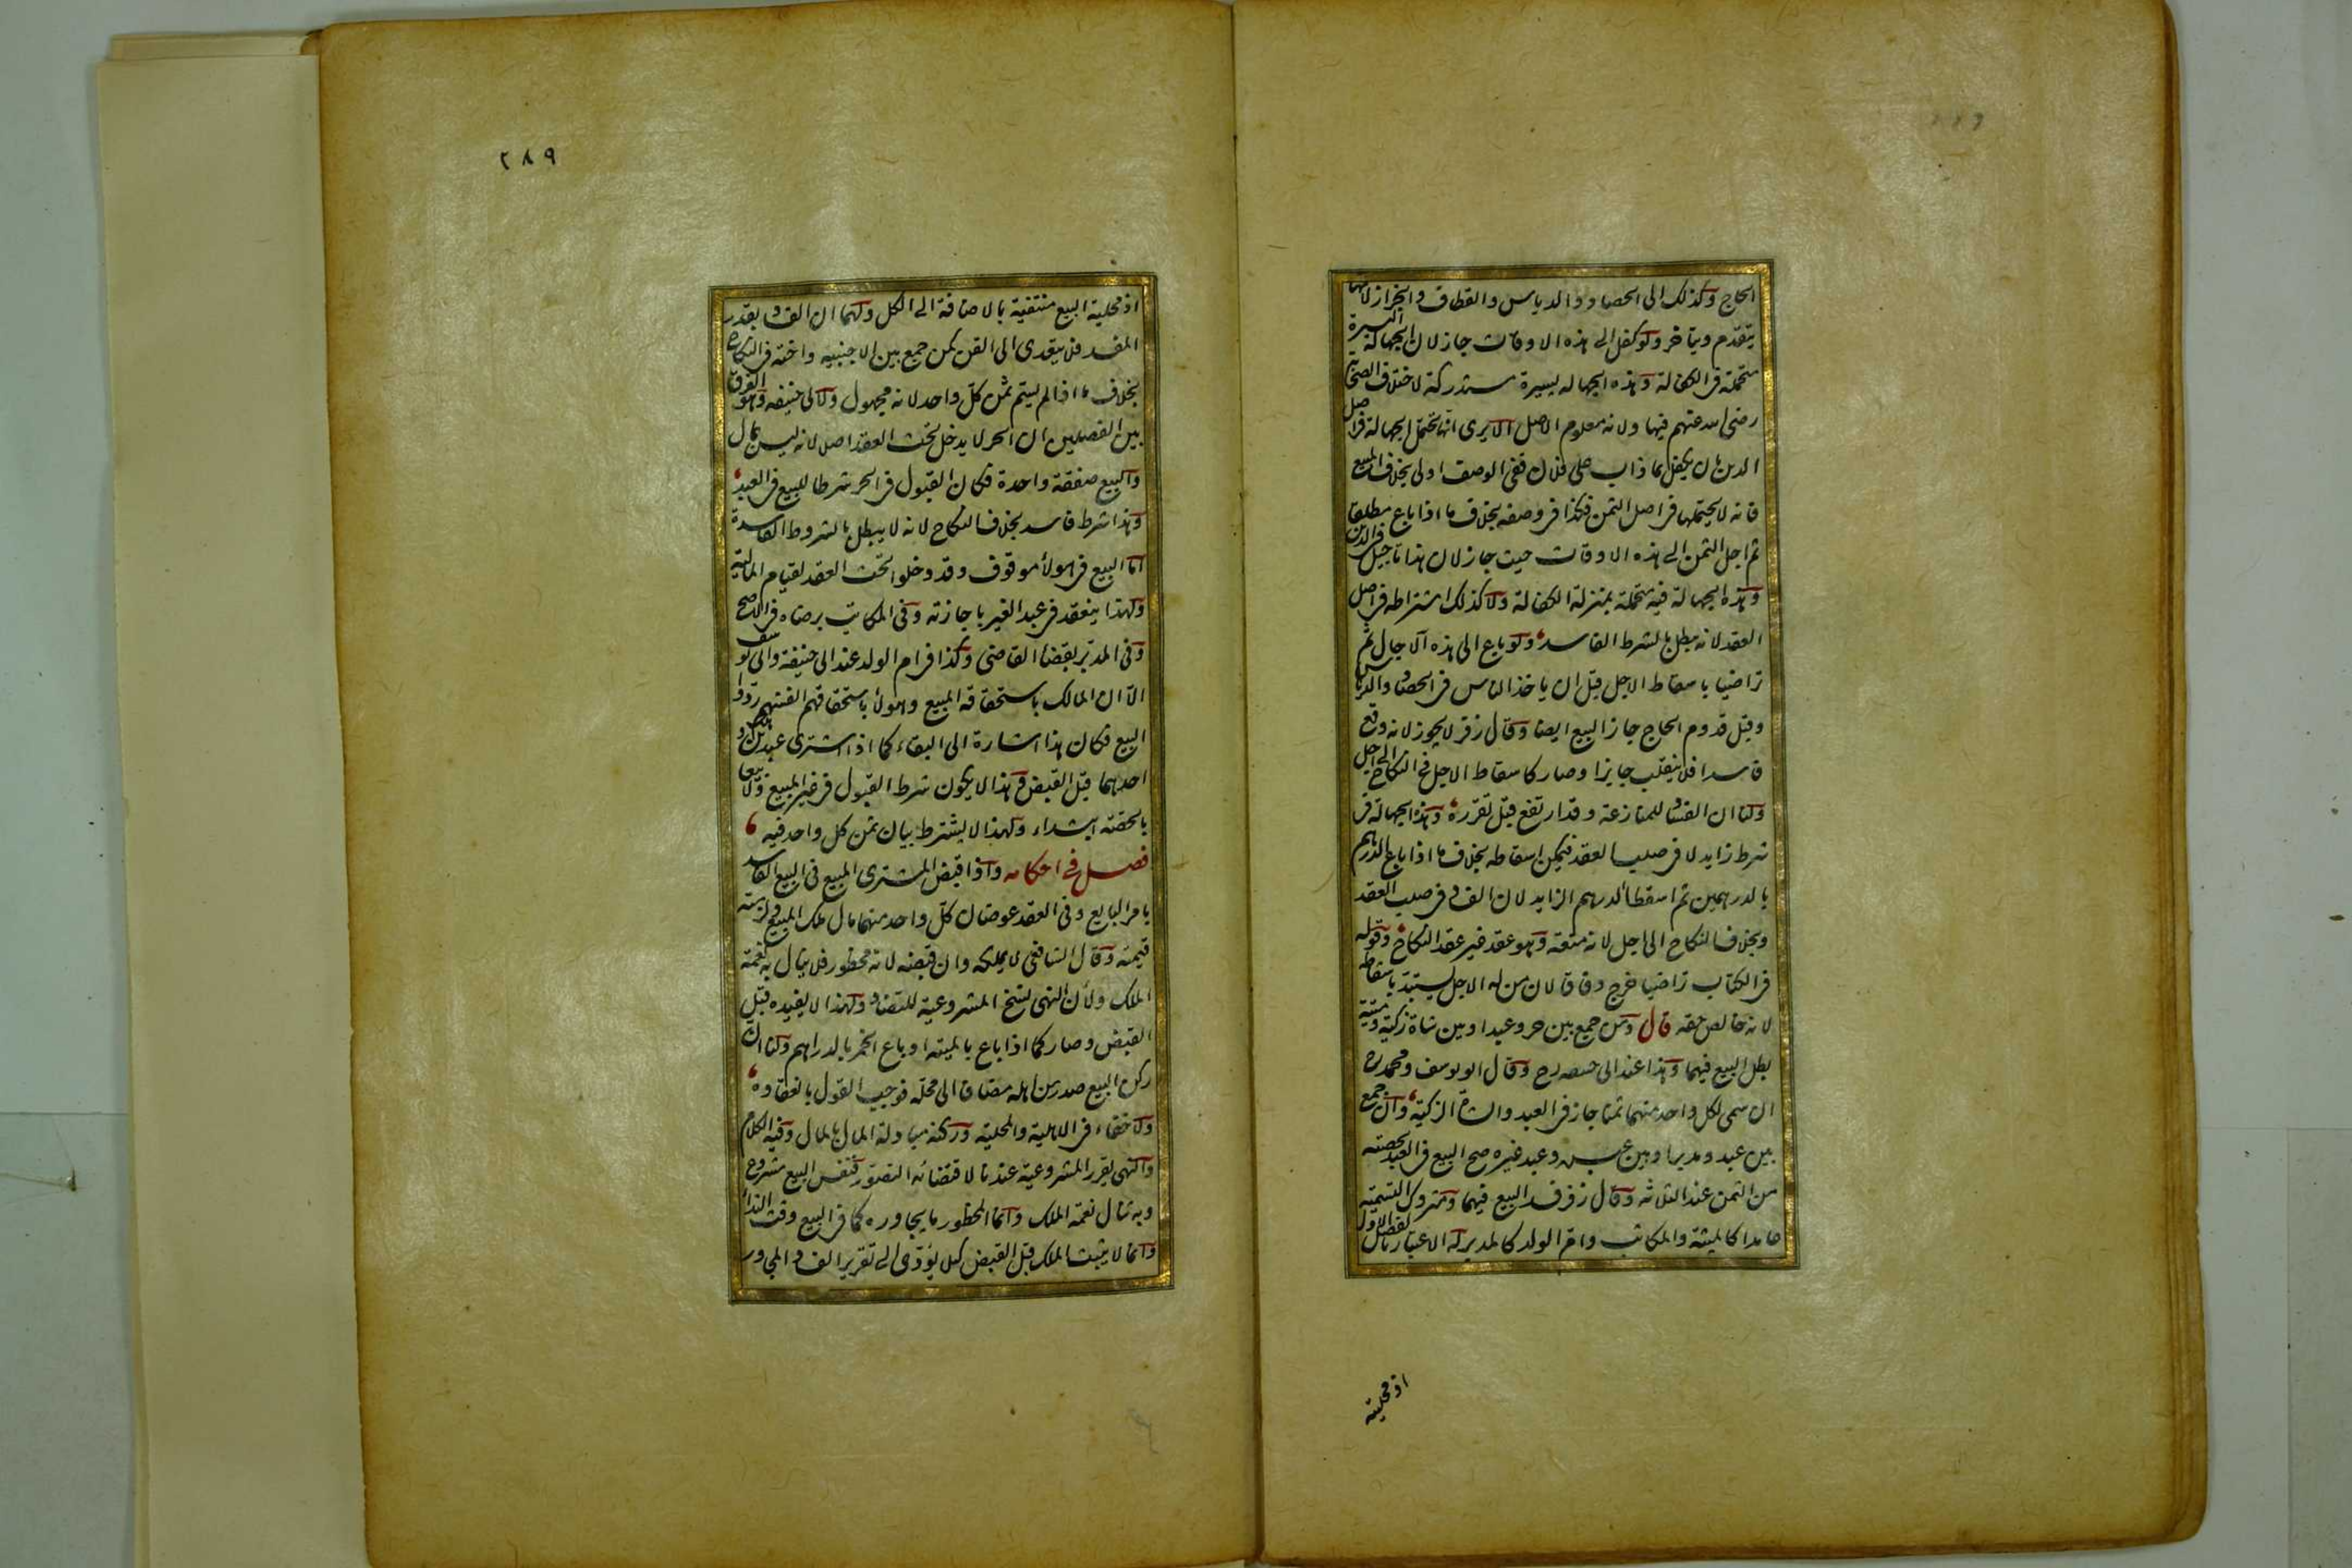 الحاج وكذلك الى الحصاد والدياس والقطاف والجزاز لانها
يتقدم ويتاخر ولو كفل الى هذه الاوقات جاز لان الجهالة اليسيرة
متحملة فى الكفالة وهذه الجهالة يسيرة مستدركة لاختلاف الصحابة
رضى الله عنهم فيها ولانه معلوم الاصل الا يرى انها تحتمل الجهالة فى اصل
الدين بان يكفل بما ذاب على فلان ففى الوصف اولى بخلاف البيع
فانه لا يحتملها فى اصل الثمن فكذا فى وصفه بخلاف ما اذا باع مطلقا
ثم اجل الثمن الى هذه الاوقات حيث جاز لان هذا تاجيل فى الدين
وهذه الجهالة فيه متحملة بمنزلة الكفالة ولا كذلك اشتراطه فى اصل
العقد لانه يبطل بالشرط الفاسد ولو باع الى هذه الآجال ثم
تراضيا باسقاط الاجل قبل ان ياخذ الناس فى الحصاد والدياس
وقبل قدوم الحاج جاز البيع ايضا وقال زفر لا يجوز لانه وقع
فاسدا فلا ينقلب جايزا وصار كاسقاط الاجل فى النكاح الى اجل
ولنا ان الفساد للمنازعة وقد ارتفع قبل تقرره وهذه الجهالة فى
شرط زايد لا فى صلب العقد فيمكن اسقاطه بخلاف ما اذا باع الدرهم
بالدرهمين ثم اسقطا الدرهم الزايد لان الفساد فى صلب العقد
وبخلاف النكاح الى اجل لانه متعة وهو عقد غير عقد النكاح وقوله
فى الكتاب تراضيا خرج وفاقا لان من له الاجل يستبد باسقاطه
لانه خالص حقه قال ومن جمع بين حر وعبد او بين شاة زكية وميتة
بطل البيع فيهما وهذا عند ابى حنيفه رح وقال ابو يوسف ومحمد رح
ان سمى لكل واحد منهما ثمنا جاز فى العبد والشاة الزكية وان جمع
بين عبد ومدبر او بين عبده وعبد غيره صح البيع فى العبد بحصته
من الثمن عند الثلاثه وقال زفر فسد البيع فيهما ومتروك التسمية
عامدا كالميتة والمكاتب وام الولد كالمدبر له الاعتبار بالفصل الاول
اذ محلية
٢٨٩
اذ محلية البيع منتفية بالاضافة الى الكل ولهما ان الفساد بقدر
المفسد فلا يتعدى الى القن كمن جمع بين الاجنبيه واخته فى النكاح
بخلاف ما اذا لم يسم ثمن كل واحد لانه مجهول ولابى حنيفه وهو الفرق
بين الفصلين ان الحر لا يدخل تحت العقد اصلا لانه ليس بمال
والبيع صفقة واحدة فكان القبول فى الحر شرطا للبيع فى العبد
وهذا شرط فاسد بخلاف النكاح لانه لا يبطل بالشروط الفاسدة
اما البيع فى هولاء موقوف وقد دخلوا تحت العقد لقيام المالية
ولهذا ينعقد فى عبد الغير باجازته وفى المكاتب برضاه فى الاصح
وفى المدبر بقضاء القاضى وكذا فى ام الولد عند ابى حنيفة وابى يوسف
الا ان المالك باستحقاقه المبيع وهولاء باستحقاقهم انفسهم ردوا
البيع فكان هذا اشارة الى البقاء كما اذا اشترى عبدين وهلك
احدهما قبل القبض وهذا لا يكون شرط القبول فى غير المبيع ولا بيعا
بالحصة ابتداء ولهذا لا يشترط بيان ثمن كل واحد فيه
فصل فى احكامه واذا قبض المشترى المبيع فى البيع الفاسد
بامر البايع وفى العقد عوضان كل واحد منهما مال ملك المبيع ولزمته
قيمته وقال الشافعى لا يملكه وان قبضه لانه محظور فلا ينال به نعمة
الملك ولان النهى نسخ المشروعية للتضاد ولهذا لا يفيده قبل
القبض وصار كما اذا باع بالميتة او باع الخمر بالدراهم ولنا ان
ركن البيع صدر من اهله مضافا الى محله فوجب القول بانعقاده
ولا خفاء فى الاهلية والمحلية وركنه مبادلة المال بالمال وفيه الكلام
والنهى يقرر المشروعية عندنا لاقتضائه التصور فنفس البيع مشروع
وبه تنال نعمة الملك وانما المحظور ما يجاوره كما فى البيع وقت النداء
وانما لا يثبت الملك قبل القبض كيلا يؤدى الى تقرير الفساد المجاور